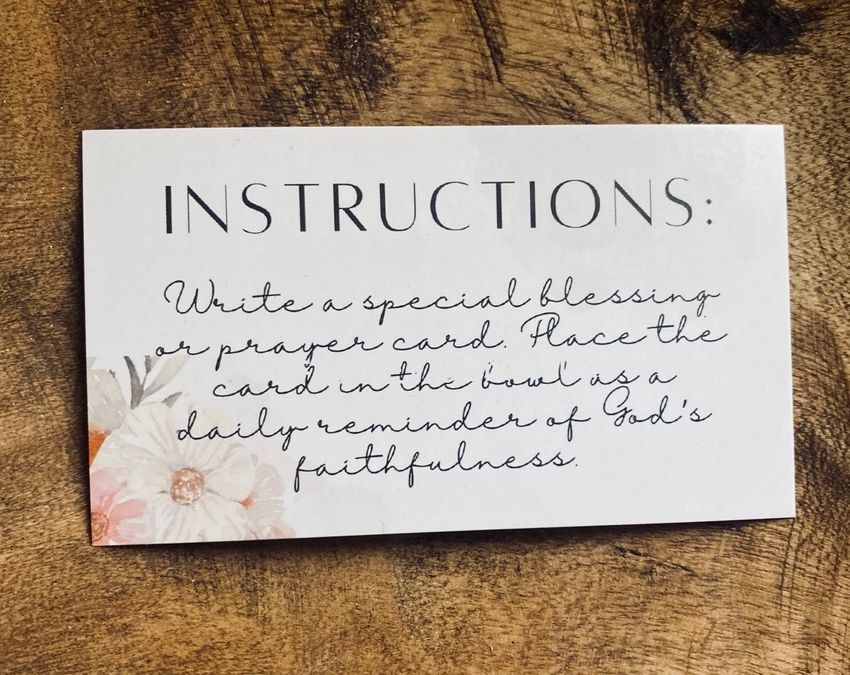 INSTRUCTIONS:
Write a special blessing
or prayer card. Place the
card in the bowl as a
daily reminder of God's
faithfulness.